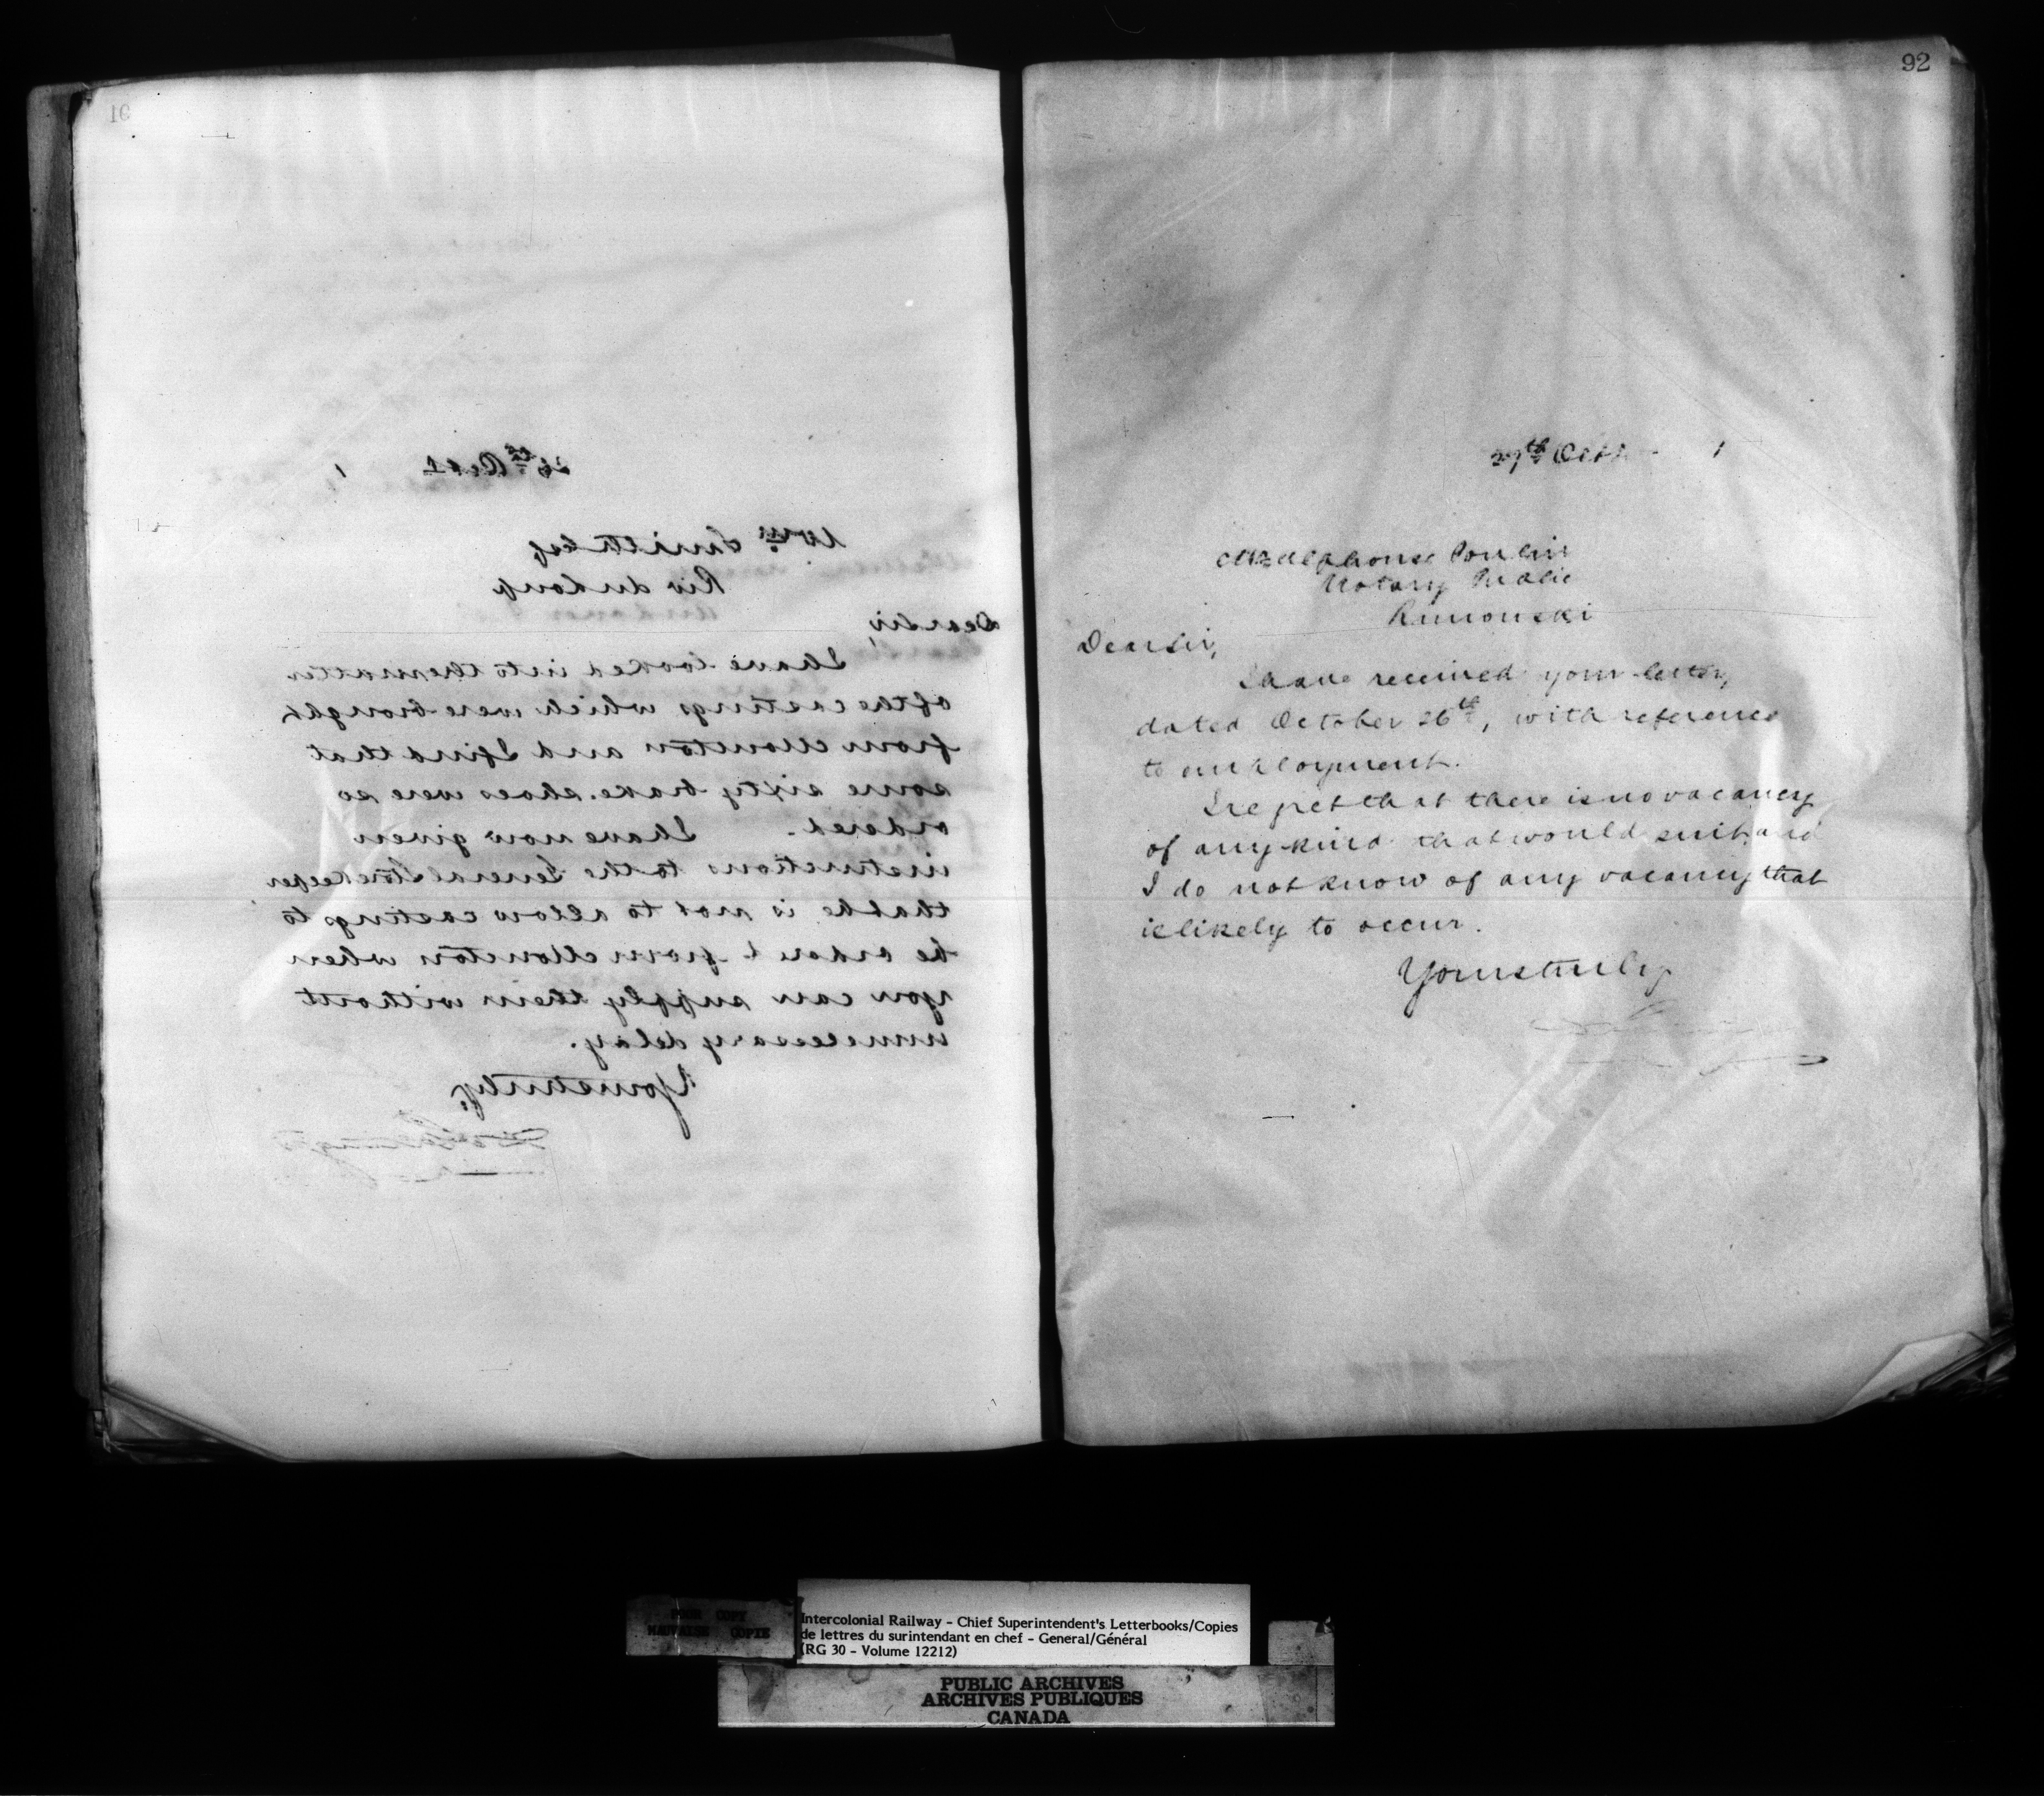 91
26th Oct 1
Wm. Smith Esq
Riv du Loup
Dear Sir,
I have looked into the matter
of the castings which were brought
from Moncton and I find that
some sixty brake shoes were so
ordered. I have now given
instructions to the General Storekeeper
that he is not to allow castings to
be ordered from Moncton when
you can supply them without
unnecessary delay.
Yours truly,
92
27th Octr 1
Mr Alphonse Poulin
Notary Public
Rimouski
Dear Sir,
I have received your letter,
dated October 26th, with reference
to employment.
I regret that there is no vacancy
of any kind that would suit, and
I do not know of any vacancy that
is likely to occur.
Yours truly
POOR COPY
MAUVAISE COPIE
Intercolonial Railway - Chief Superintendent's Letterbooks/Copies
de lettres du surintendant en chef - General/Général
(RG 30 - Volume 12212)
PUBLIC ARCHIVES
ARCHIVES PUBLIQUES
CANADA